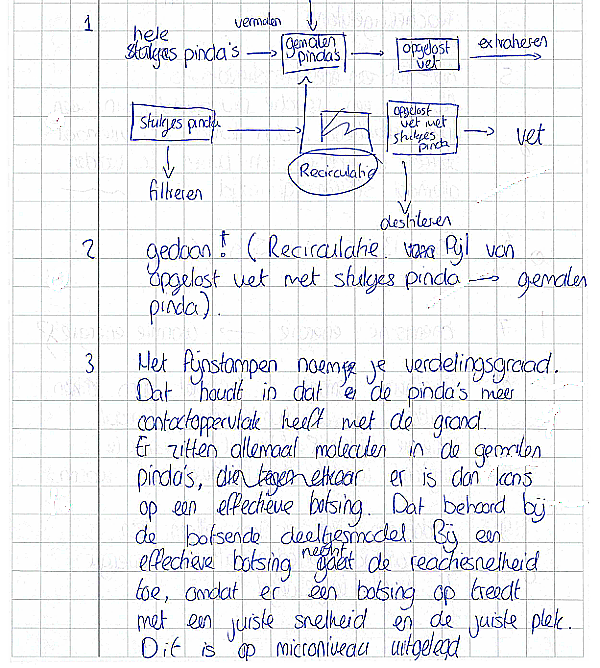 1
vermalen
hele
stukjes pinda's → gemalen pinda's → opgelost vet → extraheren
stukjes pinda → Recirculatie
opgelost vet met stukjes pinda → vet
filtreren
destileren
2 gedaan! (Recirculatie. Pijl van
opgelost vet met stukjes pinda → gemalen
pinda).
3 Het fijnstampen noem je verdelingsgraad.
Dat houdt in dat de pinda's meer
contactoppervlak heeft met de grond.
Er zitten allemaal moleculen in de gemalen
pinda's, die tegen elkaar er is dan kans
op een effectieve botsing. Dat behoord bij
de botsende deeltjesmodel. Bij een
effectieve botsing neemt de reactiesnelheid
toe, omdat er een botsing op treedt
met een juiste snelheid en de juiste plek.
Dit is op microniveau uitgelegd